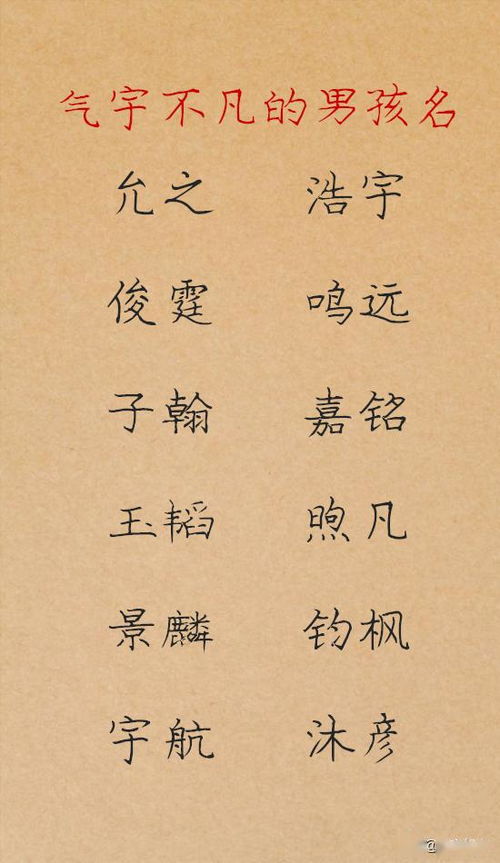 气宇不凡的男孩名
允之 浩宇
俊霆 鸣远
子翰 嘉铭
玉韬 煦凡
景麟 钧枫
宇航 沐彦
@